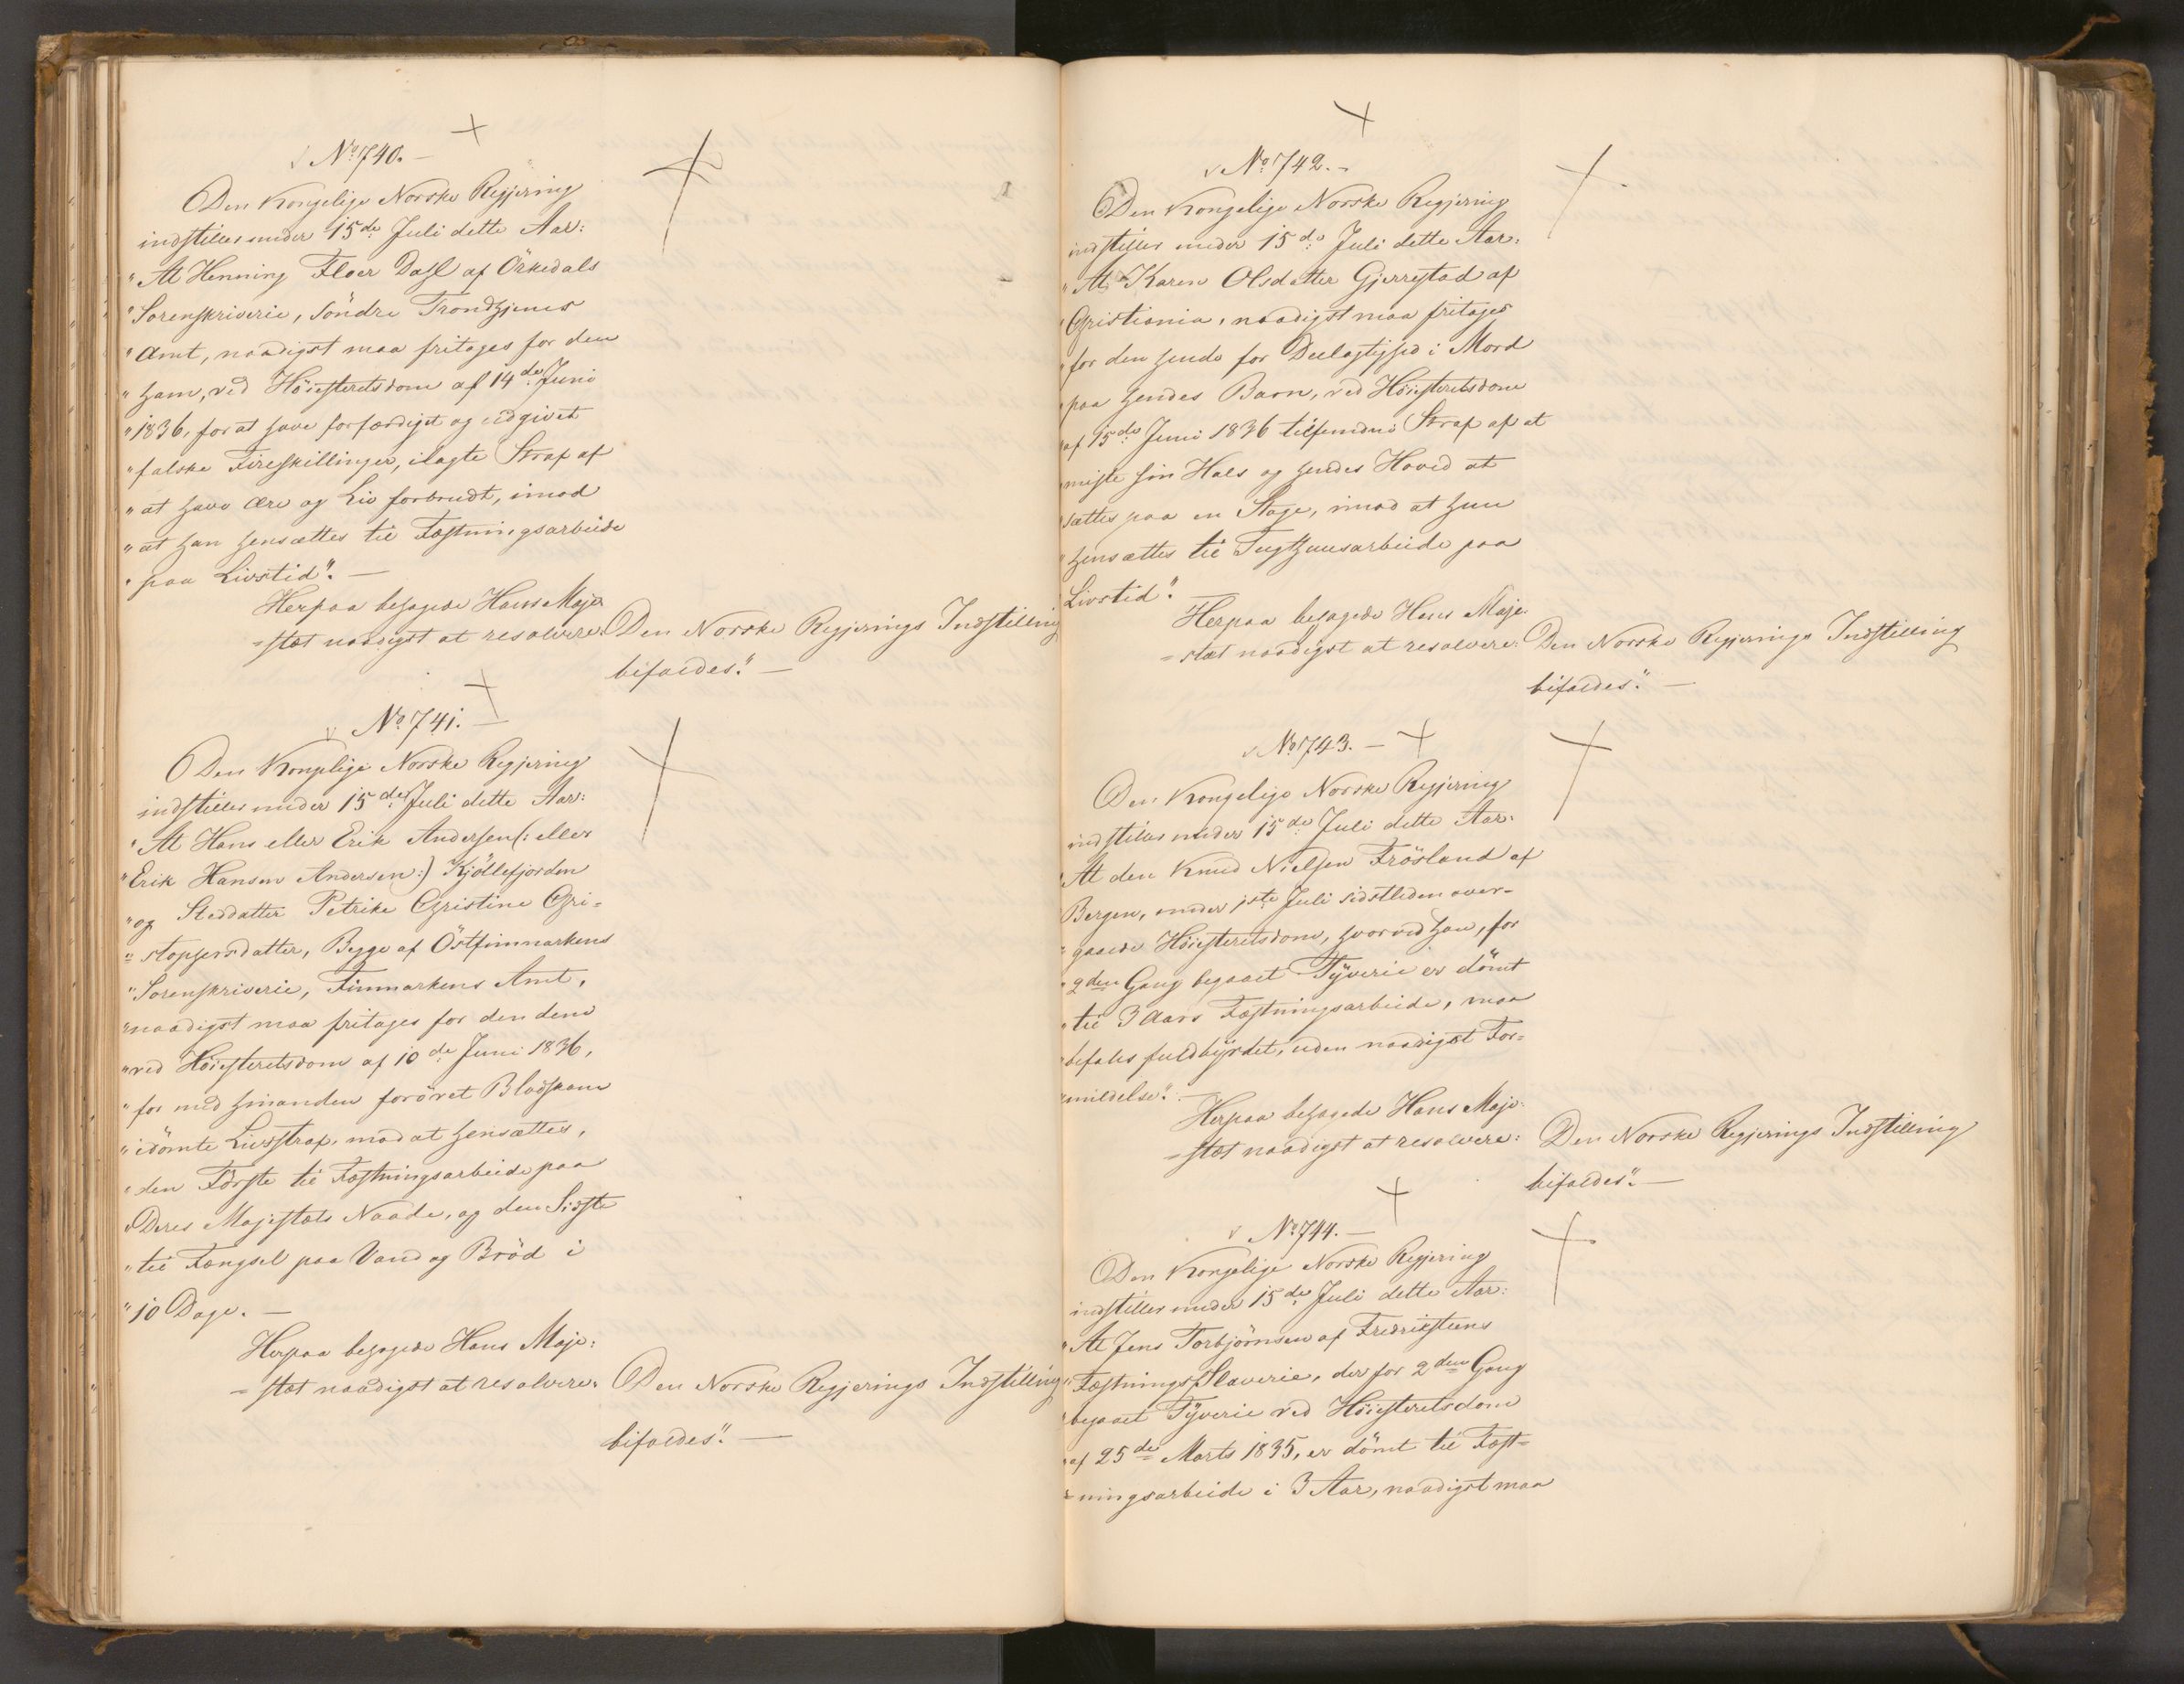 No 740. —
Den Kongelige Norske Regjering
indstiller under 15de Juli dette Aar:
"At Henning Floer Dahl af Örkedals
"Sorenskriverie, Söndre Trondhjems
"Amt, naadigst maa fritages for den
"ham, ved Höiesteretsdom af 14de Juni
"1836, for at have forfærdiget og udgivet
"falske Fireskillinger, ilagte Straf af
"at have Ære og Liv forbrudt, imod
"at han hensættes til Fæstningsarbeide
"paa Livstid". —
Herpaa behagede Hans Maje-
=stæt naadigst at resolvere: Den Norske Regjerings Indstilling
bifaldes". —
No 741. —
Den Kongelige Norske Regjering
indstiller under 15de Juli dette Aar:
"At Hans eller Erik Andersen (: eller
"Erik Hansen Andersen :) Kjöllefjorden
"og Steddatter Petrike Christine Chri=
"=stophersdatter, Begge af Östfinmarkens
"Sorenskriverie, Finmarkens Amt,
"naadigst maa fritages for den dem
"ved Höiesteretsdom af 10de Juni 1836,
"for med hinanden forövet Blodskam
"idömte Livsstraf, mod at hensættes,
"den Förste til Fæstningsarbeide paa
"Deres Majestæts Naade, og den Sidste
"til Fængsel paa Vand og Bröd i
"10 Dage. —
Herpaa behagede Hans Maje:
=stæt naadigst at resolvere: Den Norske Regjerings Indstilling
bifaldes". —
No 742. —
Den Kongelige Norske Regjering
indstiller under 15de Juli dette Aar:
"At Karen Olsdatter Gjerrestad af
"Christiania, naadigst maa fritages
"for den hende for Deelagtighed i Mord
"paa hendes Barn, ved Höiesteretsdom
"af 15de Juni 1836 tilfundne Straf af at
"miste sin Hals og hendes Hoved at
"sættes paa en Stage, imod at hun
"hensættes til Tugthuusarbeide paa
Livstid". —
Herpaa behagede Hans Maje:
=stæt naadigst at resolvere: Den Norske Regjerings Indstilling
bifaldes". —
No 743. —
Den Kongelige Norske Regjering
indstiller under 15de Juli dette Aar:
"At den Knud Nielsen Frösland af
Bergen, under 1ste Juli sidstleden over-
"gaaede Höiesteretsdom, hvorved han, for
"2den Gang begaaet Tÿverie er dömt
"til 3 Aars Fæstningsarbeide, maa
"befales fuldbÿrdet, uden naadigst For=
"mildelse". —
Herpaa behagede Hans Maje:
=stæt naadigst at resolvere: Den Norske Regjerings Indstilling
bifaldes". —
No 744. —
Den Kongelige Norske Regjering
indstiller under 15de Juli dette Aar:
"At Jens Torbjörnsen af Fredriksteens
"Fæstnings Slaverie, der for 2den Gang
"begaaet Tÿverie ved Höiesteretsdom
"af 25de Marts 1835, er dömt til Fæst=
=ningsarbeide i 3 Aar, naadigst maa